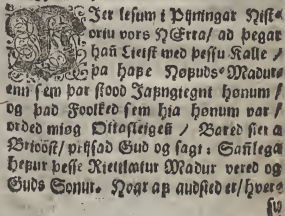 VJer lesum i Pijningar Hist-
oriu vors HErra/ ad þegar
han Lietst med þessu Kalle /
þa hafe Hofuds-Madur-
enn sem þar stood Jafngiegnt honum /
og þad Foolked sem hia honum var /
vorded miøg Ottasleigeñ / Bared sier a
Brioost/ prijsad Gud og sagt: Sañlega
hefur þesse Riettlætur Madur vered og
Guds Sonur. Nogr af audsied er/ hvers
su